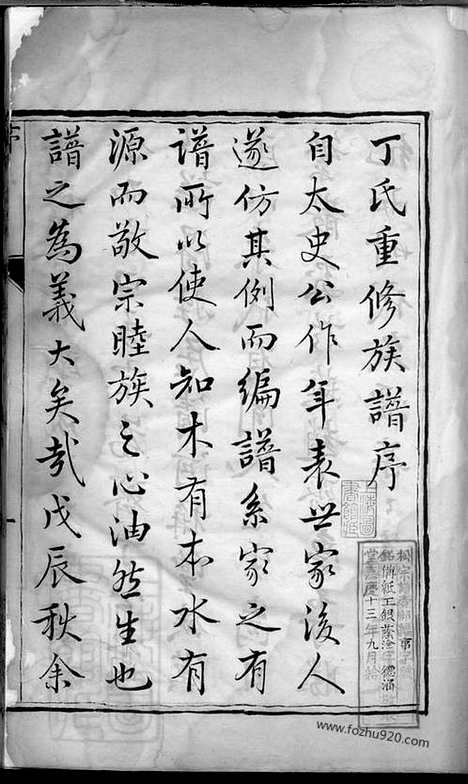 丁氏重修族譜序
自太史公作年表世家後人
遂仿其例而編譜系家之有
譜所以使人知木有本水有
源而敬宗睦族之心油然生也
譜之為義大矣哉戊辰秋余
上海圖
書館藏
堂嘉慶十三年九月
www.fozhu920.com